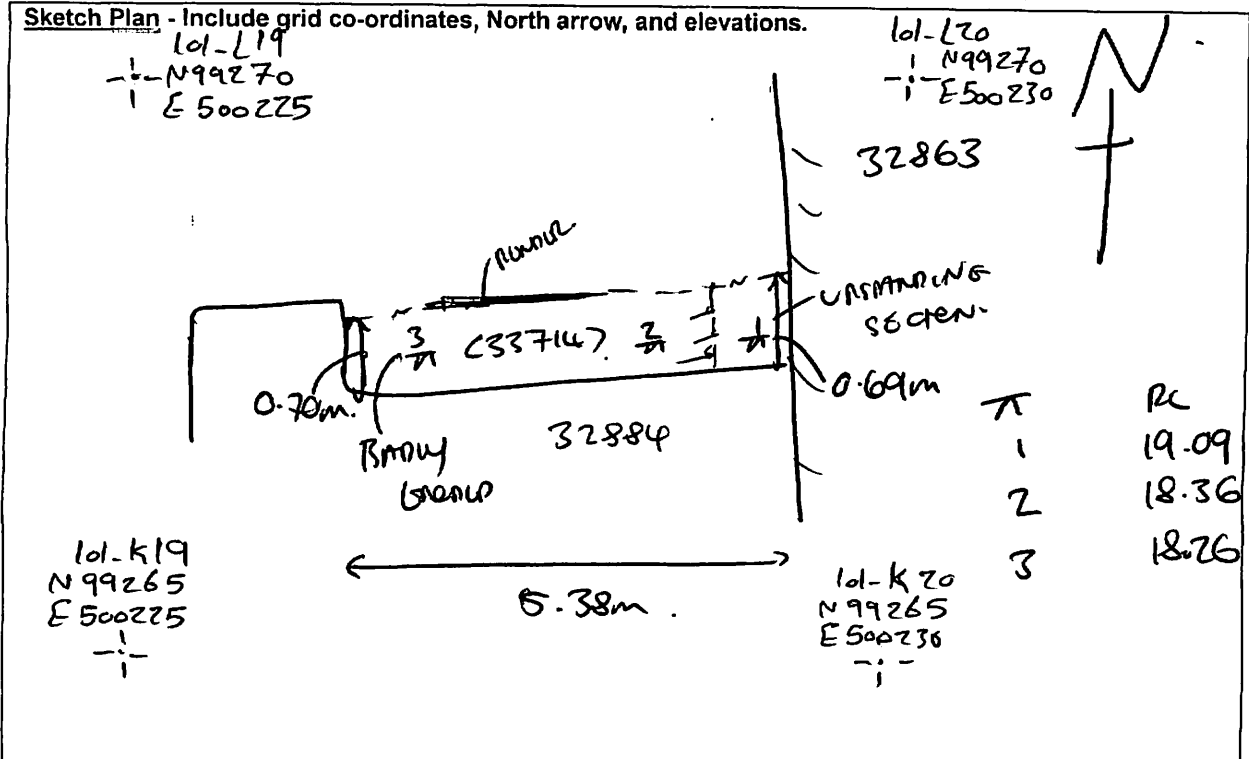 Sketch Plan - Include grid co-ordinates, North arrow, and elevations.
101-L19
N99270
E 500225
101-L20
N99270
E500230
N
32863
UPSTANDING
SECTION.
3
(33714)
2
1
0.70m.
0.69m
BADLY
32884
RL
1 19.09
2 18.36
3 18.26
101-K19
N 99265
E 500225
5.38m.
101-K20
N 99265
E 500230